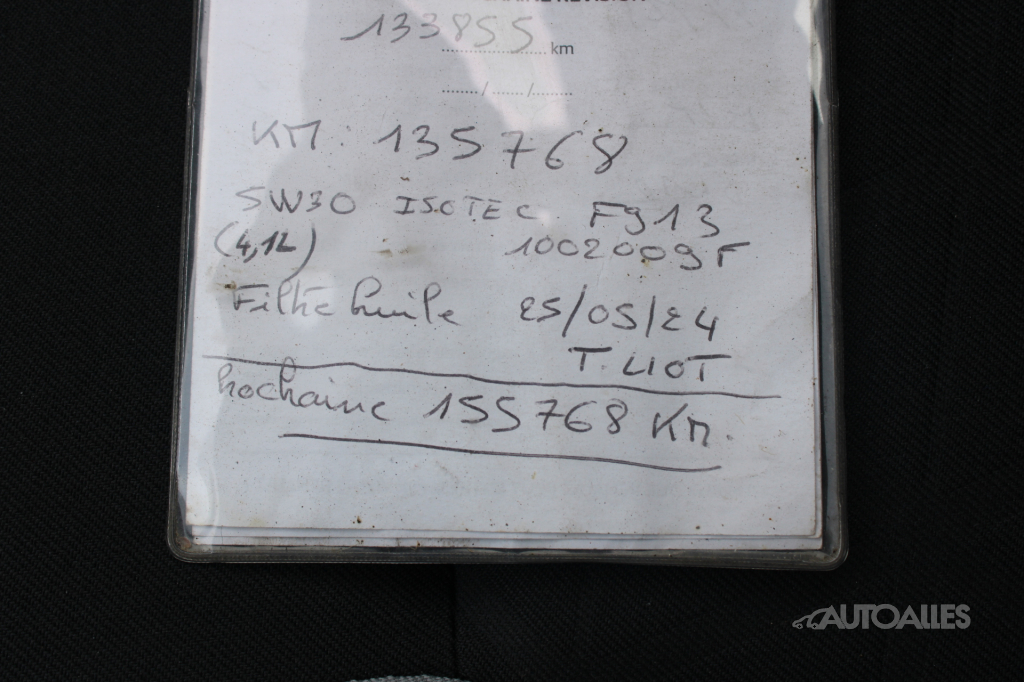 133855
km
KM: 135768
5W30 ISOTEC F913
(4,1L) 1002009F
Filtre huile 25/05/24
T. LIOT
Prochaine 155768 KM.
AUTOALLES